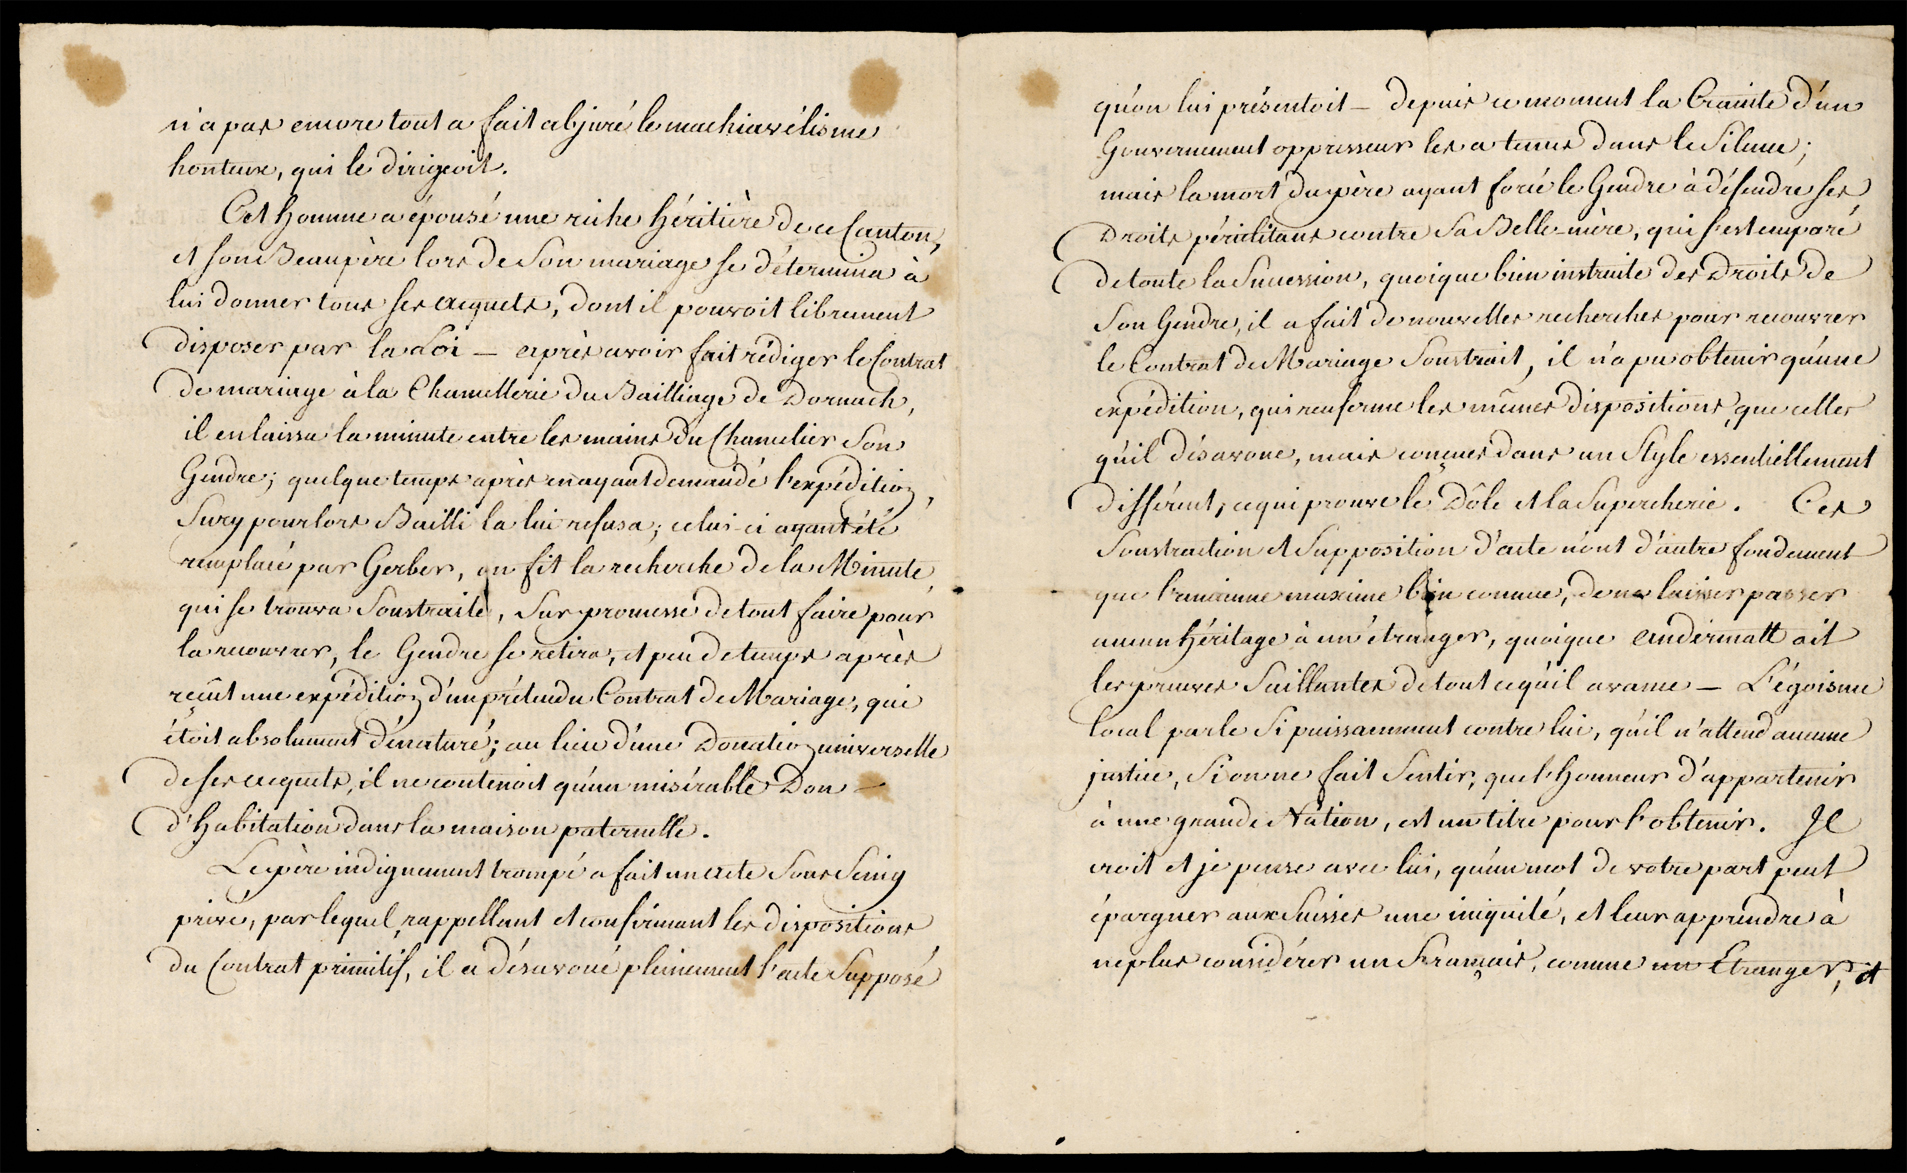 n'a pas encore tout a fait abjuré le machiavélisme
honteux, qui le dirigeoit.
Cet homme a épousé une riche héritière de ce Canton,
et son Beaupère lors de Son mariage se détermina à
lui donner tous ses acquets, dont il pouvoit librement
disposer par la Loi — après avoir fait rédiger le Contrat
de mariage à la Chancellerie du Bailliage de Dornach,
il en laissa la minute entre les mains du Chancelier Son
Gendre; quelque temps après en ayant demandé l'expédition,
Sury pour lors Bailli la lui refusa; celui-ci ayant été
remplacé par Gerber, on fit la recherche de la Minute
qui se trouva Soustraite, Sur promesse de tout faire pour
la recouvrer, le Gendre se retira, et peu de temps après
reçût une expédition d'un prétendu Contrat de Mariage, qui
étoit absolument dénaturé; au lieu d'une Donation universelle
de ses acquets, il ne contenoit qu'un misérable Don —
d'Habitation dans la maison paternelle.
Le père indignement trompé a fait un acte Sous Seing
privé, par lequel, rappellant et confirmant les dispositions
du Contrat primitif, il a désavoué pleinement l'acte Supposé
qu'on lui présentoit — depuis ce moment la Crainte d'un
Gouvernement oppresseur les a tenus dans le Silence;
mais la mort du père ayant forcé le Gendre à défendre ses
Droits périclitans contre Sa Belle-mère, qui s'est emparé
de toute la Succession, quoique bien instruite des Droits de
Son Gendre, il a fait de nouvelles recherches pour recouvrer
le Contrat de Mariage Soustrait, il n'a pu obtenir qu'une
expédition, qui renferme les mêmes dispositions, que celles
qu'il désavoue, mais conçues dans un Style essentiellement
différent, ce qui prouve le Dôle et la Supercherie. Ces
Soustraction et Supposition d'acte n'ont d'autre fondement
que l'ancienne maxime bien connue, de ne laisser passer
aucun héritage à un étranger, quoique Andermatt ait
les preuves Saillantes de tout ce qu'il avance — L'égoisme
local parle Si puissamment contre lui, qu'il n'attend aucune
justice, Si on ne fait Sentir, que l'honneur d'appartenir
à une grande Nation, est un titre pour l'obtenir. Il
croit et je pense avec lui, qu'un mot de votre part peut
épargner aux Suisses une iniquité, et leur apprendre à
ne plus considérer un Français, comme un Etranger, et